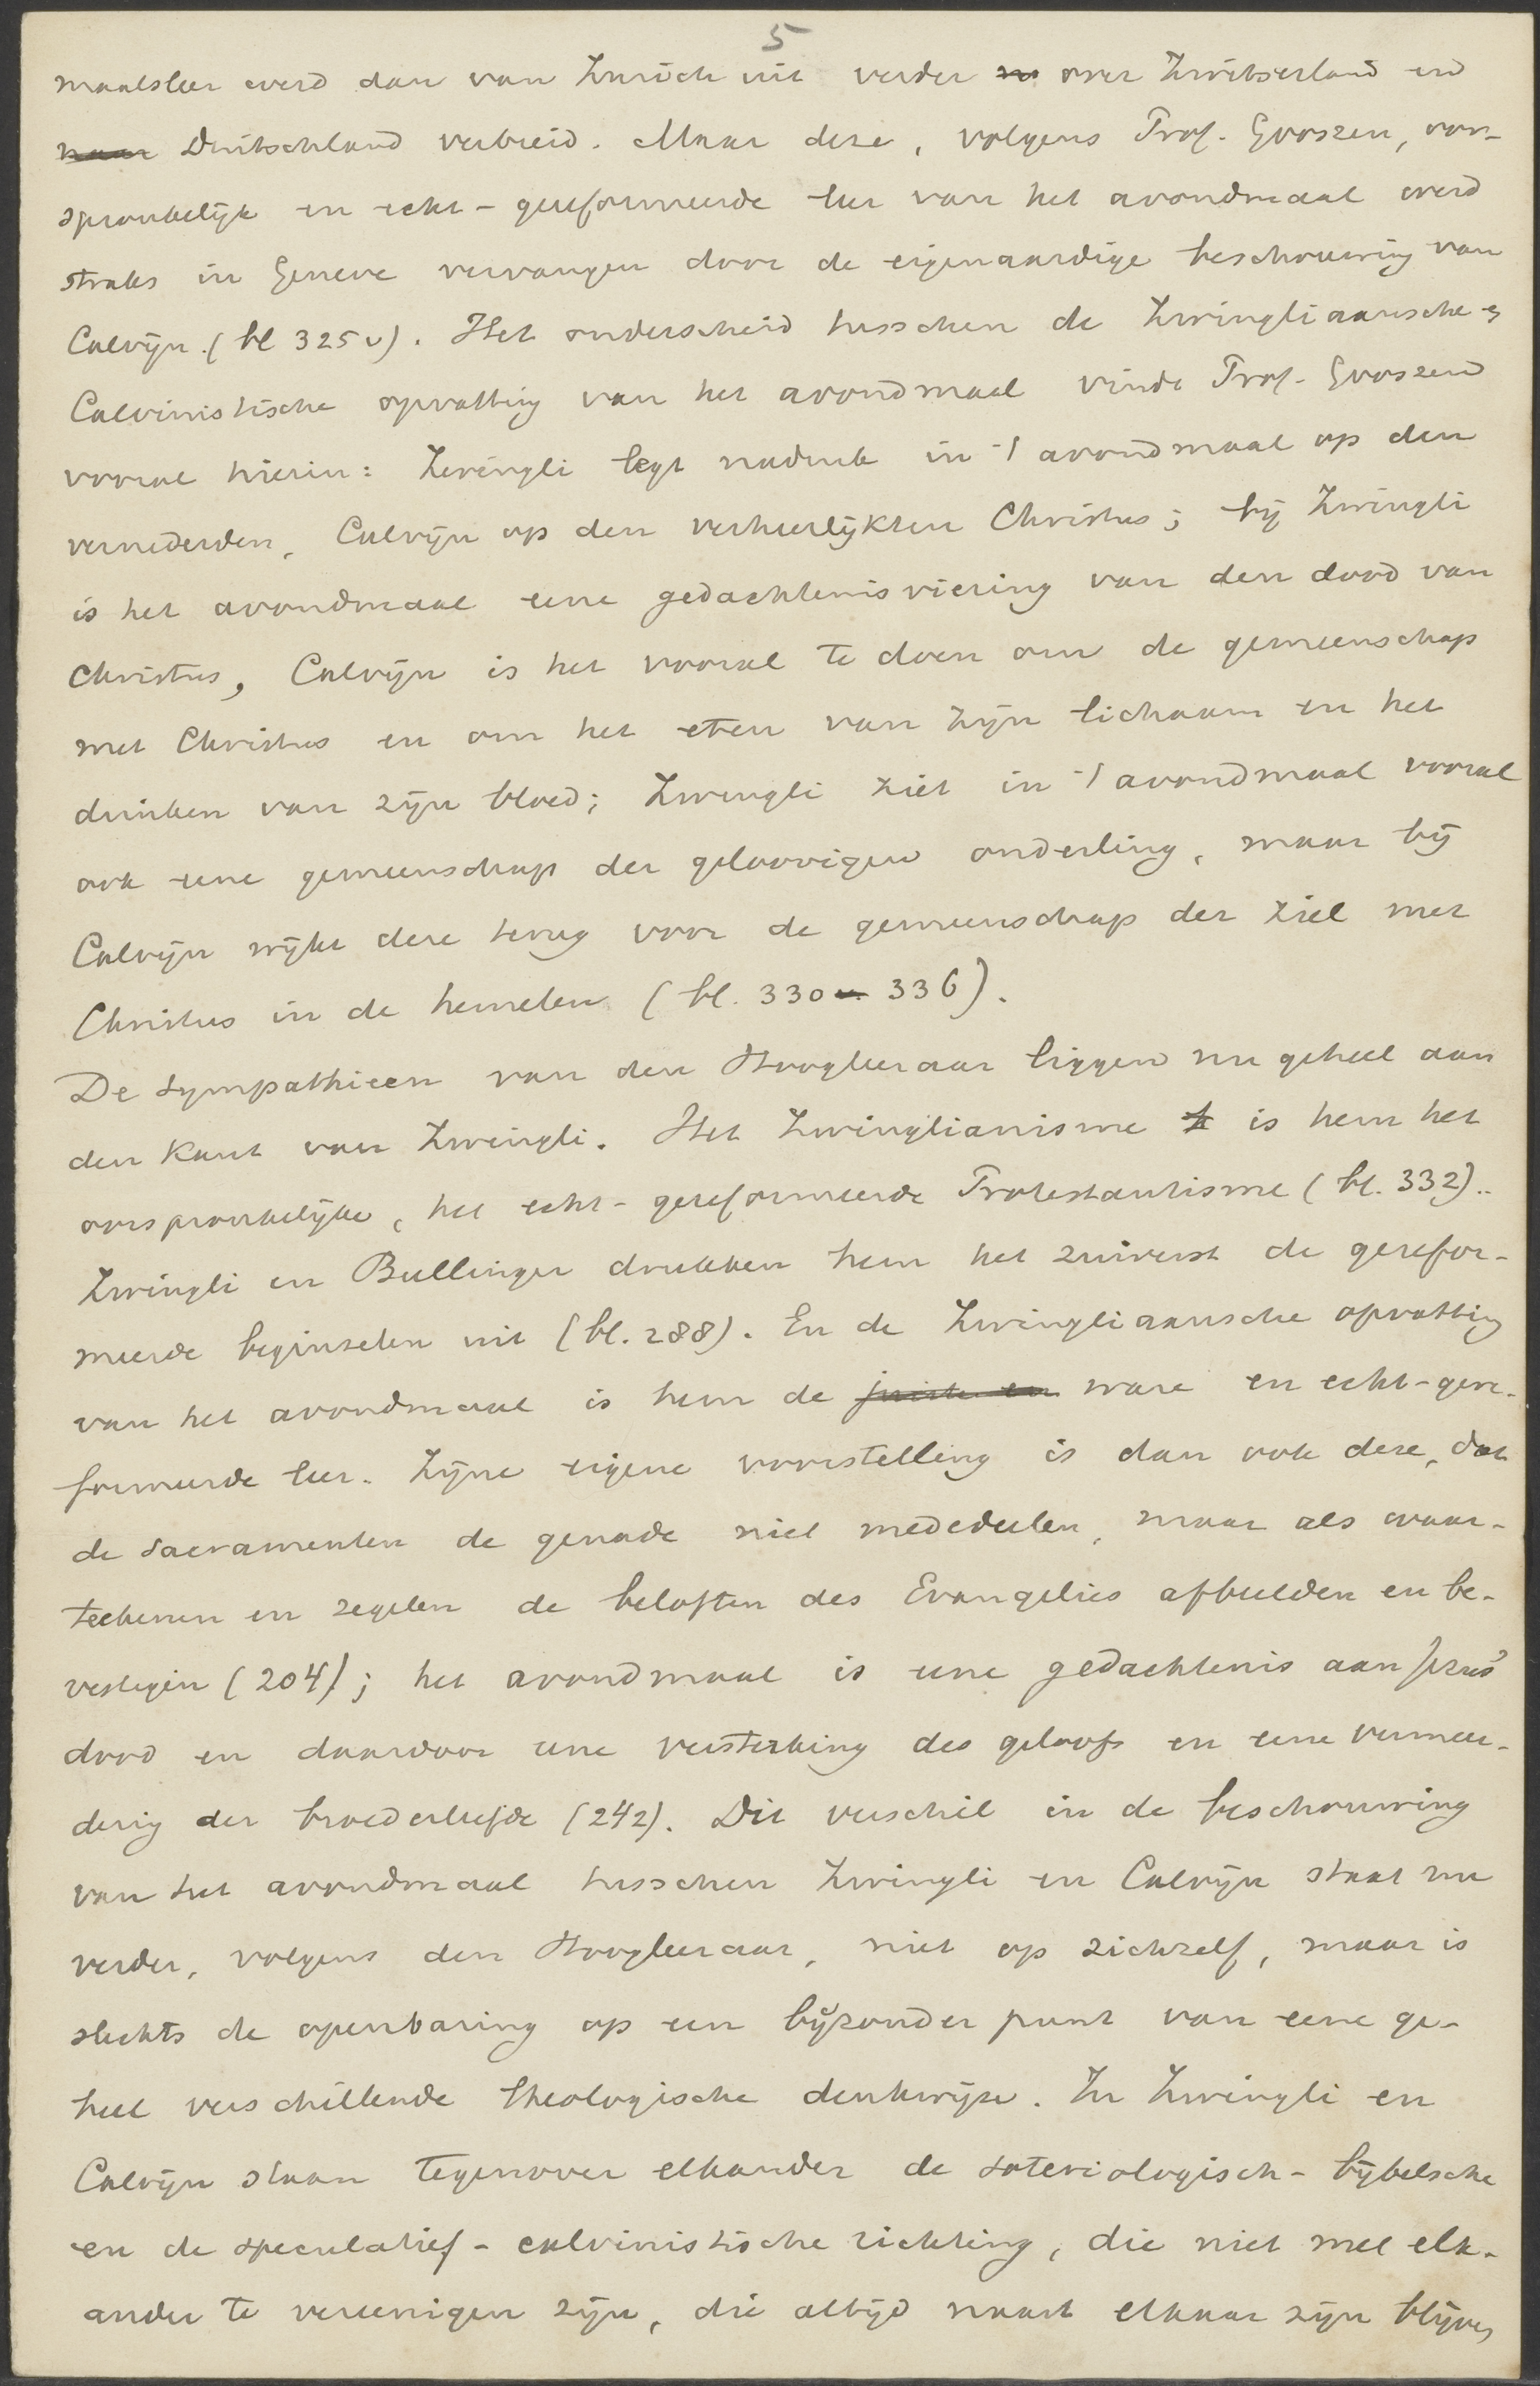 5
maalsleer werd dan van Zurich uit verder over Zwitserland en
naar Duitschland verbreid. Maar deze, volgens Prof. Gooszen, oor-
spronkelijk en echt-gereformeerde leer van het avondmaal werd
straks in Geneve vervangen door de eigenaardige beschouwing van
Calvijn. (bl 325 v). Het onderscheid tusschen de Zwingliaansche en
Calvinistische opvatting van het avondmaal vindt Prof. Gooszen
vooral hierin: Zwingli legt nadruk in 't avondmaal op den
vernederden, Calvijn op den verheerlijkten Christus; bij Zwingli
is het avondmaal eene gedachtenisviering van den dood van
Christus, Calvijn is het vooral te doen om de gemeenschap
met Christus en om het eten van zijn lichaam en het
drinken van zijn bloed; Zwingli ziet in 't avondmaal vooral
ook eene gemeenschap der geloovigen onderling, maar bij
Calvijn wijkt deze terug voor de gemeenschap der ziel met
Christus in de hemelen (bl. 330 v. 336).
De sympathieen van den Hoogleeraar liggen nu geheel aan
den kant van Zwingli. Het Zwinglianisme is hem het
oorspronkelijke, het echt-gereformeerde Protestantisme (bl. 332)..
Zwingli en Bullinger drukken hem het zuiverst de gerefor-
meerde beginselen uit (bl. 288). En de Zwingliaansche opvatting
van het avondmaal is hem de juiste en ware en echt-gere-
formeerde leer. Zijne eigene voorstelling is dan ook deze, dat
de sacramenten de genade niet mededeelen, maar als waar-
teekenen en zegelen de beloften des Evangelies afbeelden en be-
vestigen (204); het avondmaal is eene gedachtenis aan Jezus'
dood en daardoor eene versterking des geloofs en eene vermeer-
derig der broederliefde (242). Dit verschil in de beschouwing
van het avondmaal tusschen Zwingli en Calvijn staat nu
verder, volgens den Hoogleeraar, niet op zichzelf, maar is
slechts de openbaring op een bijzonder punt van eene ge-
heel verschillende theologische denkwijze. In Zwingli en
Calvijn staan tegenover elkander de soteriologisch-bijbelsche
en de speculatief-calvinistische richting, die niet met elk-
ander te vereenigen zijn, die altijd naast elkaar zijn blijven